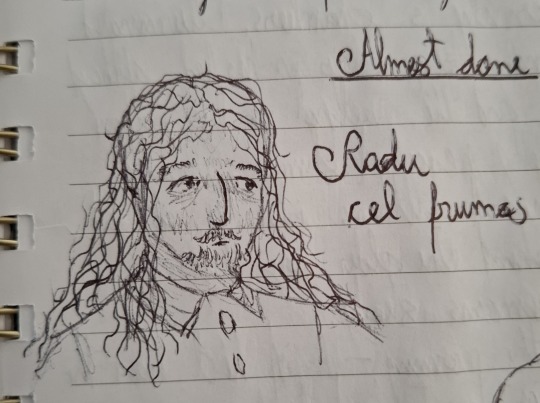 Almost done
Radu
cel frumos